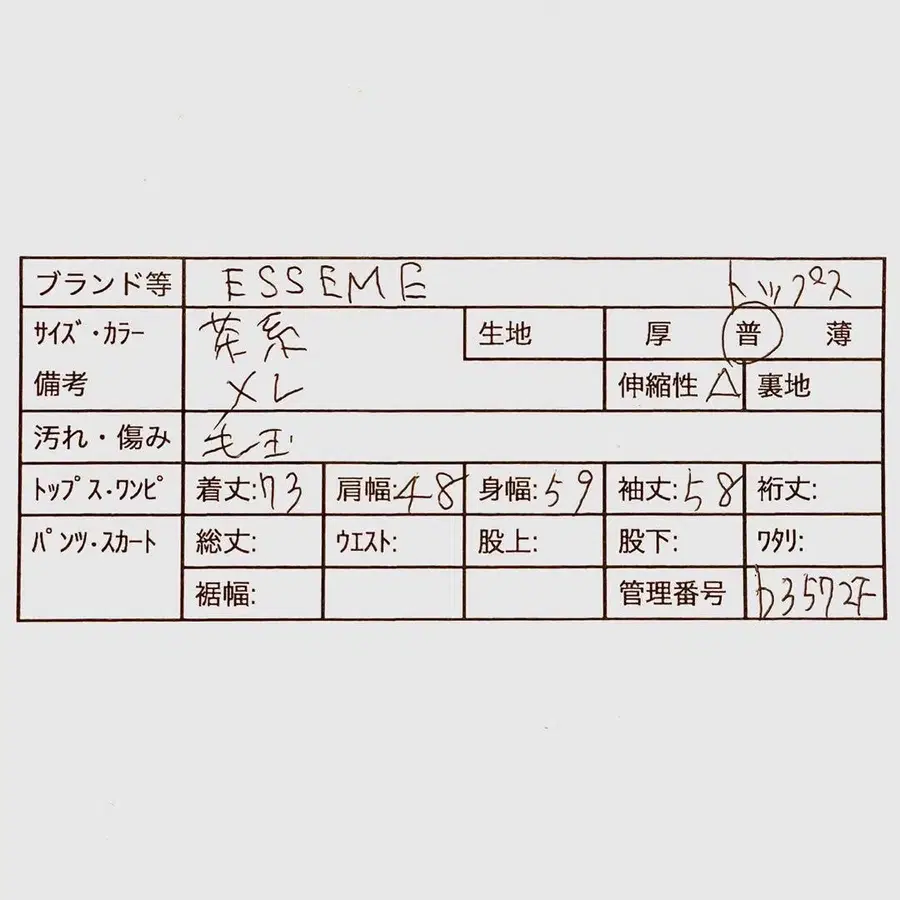 ブランド等 ESSEME トップス
サイズ・カラー 茶系 生地 厚 普 薄
備考 メレ 伸縮性 △ 裏地
汚れ・傷み 毛玉
トップス・ワンピ 着丈:73 肩幅:48 身幅:59 袖丈:58 裄丈:
パンツ・スカート 総丈: ウエスト: 股上: 股下: ワタリ:
裾幅: 管理番号 b3572F